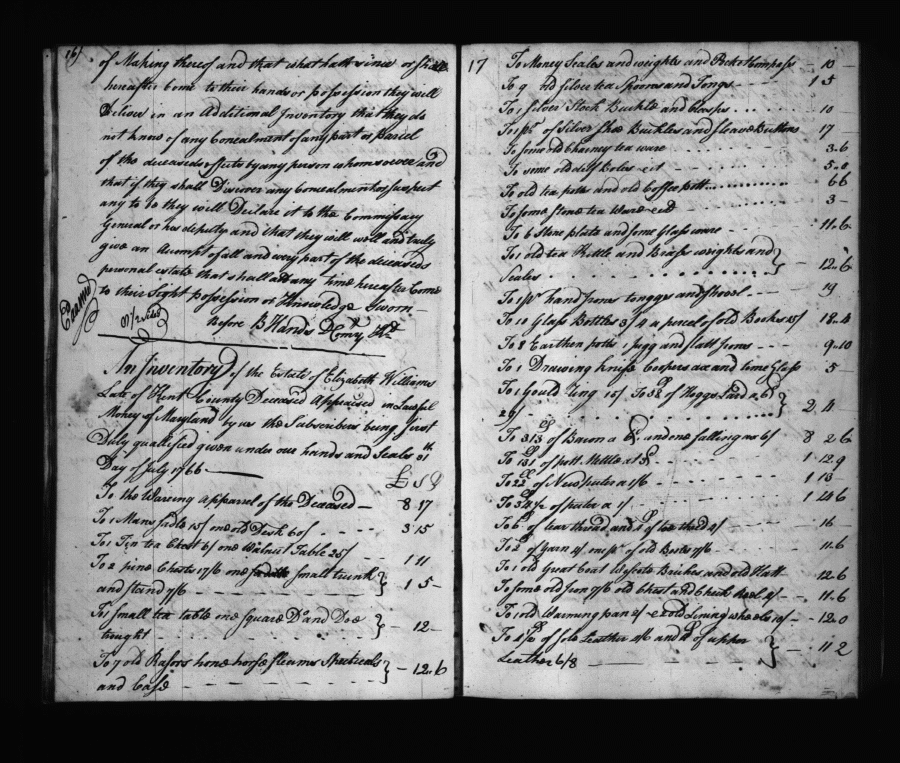 16)
of Making thereof and that what hath since or shall
hereafter come to their hands or possession they will
Deliver in an Additional Inventory that they do
not know of any Concealment of any part or parcel
of the deceaseds estate by any person whomsoever and
that if they shall Discover any Concealment or suspect
any to be they will Declare it to the Commissary
General or his deputy and that they will well and truly
give an Accompt of all and every part of the deceaseds
personal estate that shall at any time hereafter Come
to their Sight possession or Knowledge Sworn
before B Hands D Comy
Examd
An Inventory of the Estate of Elizabeth Williams
Late of Kent County Deceased Appraised in Lawful
Money of Maryland by us the Subscribers being first
Duly qualified given under our hands and Seales 31th
Day of July 1766
£ S D
To the Wareing Apparrel of the Deceased — 8 17
To 1 Mans sadle 15/ one old Desk 60/ 3 15
To 1 Tin tea Chest 6/ one Walnut Table 25/ 1 11
To 2 pine Chests 17/6 one small trunk
and stand 7/6 } 1 5
To 1 small tea table one square Do and Doe
} 12
To 7 old Rasors hone horse fleams Specticals
and Case } 12..6
17
To Money Scales and weights and Pocket Compass 10
To 9 old silver tea Spoons and Tongs 1 5
To 1 silver Stock Buckle and Clasps 10
To 1 pr of Silver Shoe Buckles and sleave Buttons 17
To some old Chainey tea ware 3..6
To some old delf Boles 5..0
To old tea potts and old Coffee pott 6 6
To some stone tea Ware 3
To 6 Stone plats and some Glass ware 11..6
To 1 old tea Kettle and Brass weights and
Scales } 12..6
To 1 pr hand Irons tonggs and shovel 19
To 10 Glass Bottles 3/4 a parcel of old Books 15/ 18..4
To 8 Earthen potts 1 jugg and flatt Irons 9..10
To 1 Drawing knife Coopers ax and time Glass 5
To 1 Gould Ring 15/ To 58 of Hoggs Lard a 6d
29/ } 2 4
To 313 of Bacon a and one falling ax 6/ 8 2..6
To 131 of pott Mettle at 1 12..9
To 22 of New puter a 1/6 1 13
To 34 1/2 of puter a 1/ 1 4 6
16
To 2 of yarn 4/ one pr of old Boots 7/6 11..6
To 1 old Great Coat Briches and old Hatt 12..6
To some old Iron 7/6 old Chest and Check Reel 4/ 11..6
To 1 old Warming pan 2/ 12..0
of sole Leather and of upper
Leather 6/8 } 11 2